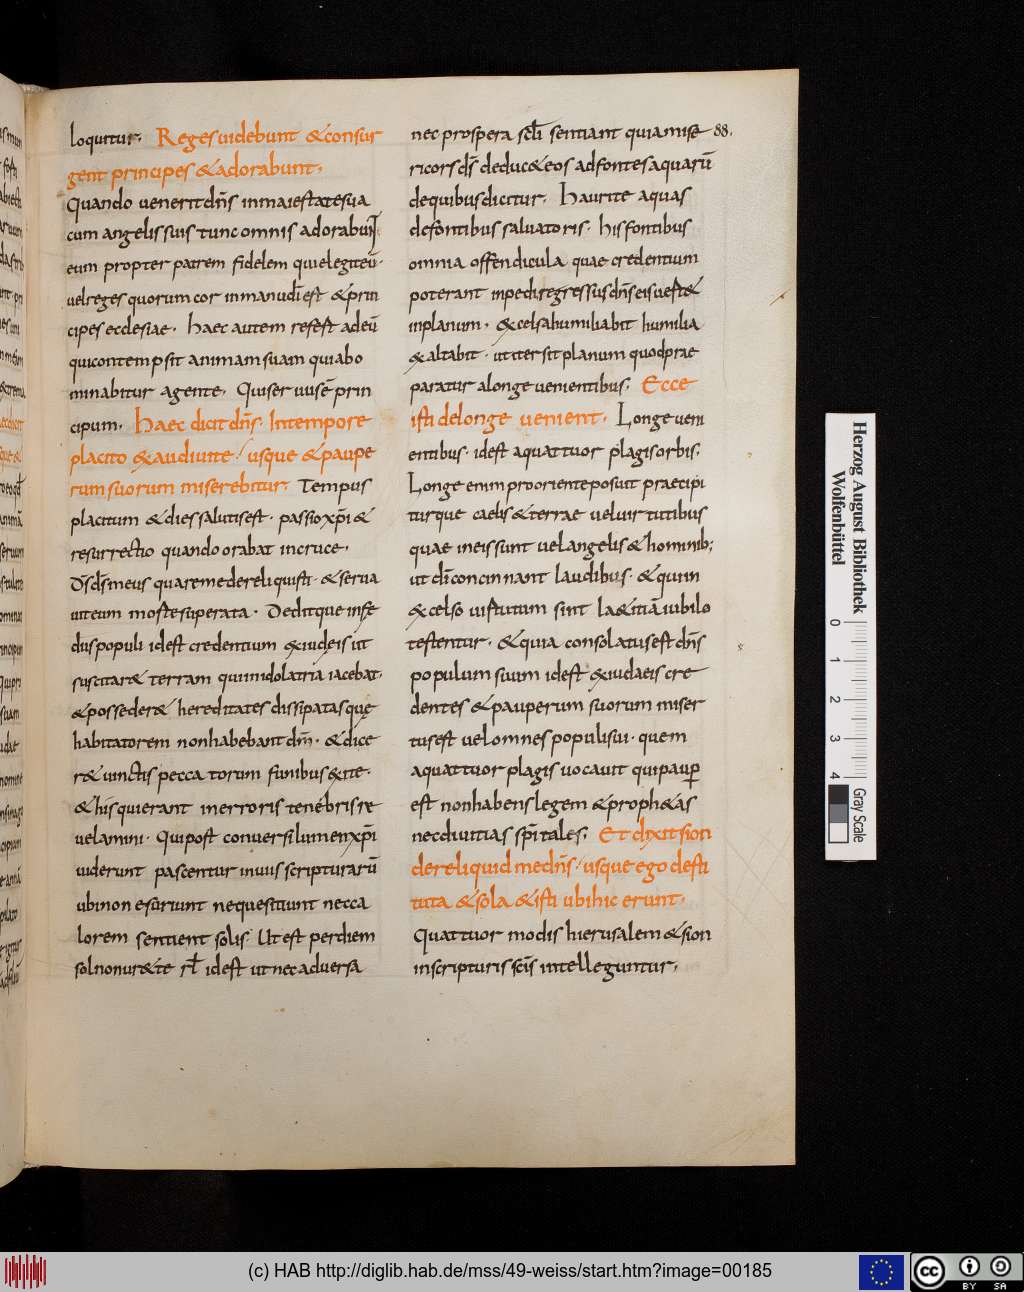 loquitur. Reges uidebunt & consur
gent principes & adorabunt.
Quando uenerit dn̄s in maiestate sua
cum angelis suis tunc omnis adorabunt
eum propter patrem fidelem qui elegit eū.
uel reges quorum cor in manu dī est & prin
cipes ecclesiae. haec autem refest ad eū
qui contempsit animam suam qui abo
minabitur a gente. Qui seruus ē prin
cipum. Haec dicit dn̄s. In tempore
placito exaudiui te. usque & paupe
rum suorum miserebitur. Tempus
placitum & dies salutis est. passio xp̄i &
resurrectio quando orabat in cruce.
Ds̄ ds̄ meus quare me dereliquisti. & serua
ui te um mortem superata. Deditque in fę
dus populi id est credentium ex iudeis ut
suscitar& terram qui in idolatria iacebat.
& posseder& hereditates dissipatas quę
habitatorem non habebant dm̄. & dice
r& uinctis peccatorum funibus exite.
& his qui erant in erroris tenebris re
uelamini. Qui post conuersi lumen xp̄i
uiderunt pascentur in uiis scripturarū
ubi non esuriunt neque sitiunt nec ca
lorem sentient solis. Ut est per diem
sol non ur& te rł id est ut nec aduersa
nec prospera scłi sentiant quia mise 88.
ricors ds̄ deduc& eos ad fontes aquarū
de quibus dicitur. Haurite aquas
de fontibus saluatoris. his fontibus
omnia offendicula quae credentium
poterant inpedire gressus dn̄s eis uert&
in planum. & celsa humiliabit humilia
exaltabit. ut iter sit planum quod prae
paratur a longe uenientibus. Ecce
isti de longe uenient. Longe ueni
entibus. id est a quattuor plagis orbis.
Longe enim pro oriente posuit praecipi
turque caelis & terrae uel uirtutibus
quae in eis sunt uel angelis & hominib;
ut dī concinnant laudibus. & qui in
excelso uirtutum sint laetitiā iubilo
testentur. & quia consolatus est dn̄s
populum suum id est ex iudaeis cre
dentes & pauperum suorum miser
tus est uel omnes populi sui. quem
a quattuor plagis uocauit qui pauꝑ
est non habens legem & proph&as
nec diuitias sp̄itales. Et dixit sion
dereliquid me dn̄s. usque ego desti
tuta & sola & isti ubi hic erunt.
Quattuor modis hierusalem & sion
in scripturis scīs intelleguntur.
Herzog August Bibliothek
Wolfenbüttel
0 1 2 3 4
Gray Scale
(c) HAB http://diglib.hab.de/mss/49-weiss/start.htm?image=00185
cc BY SA